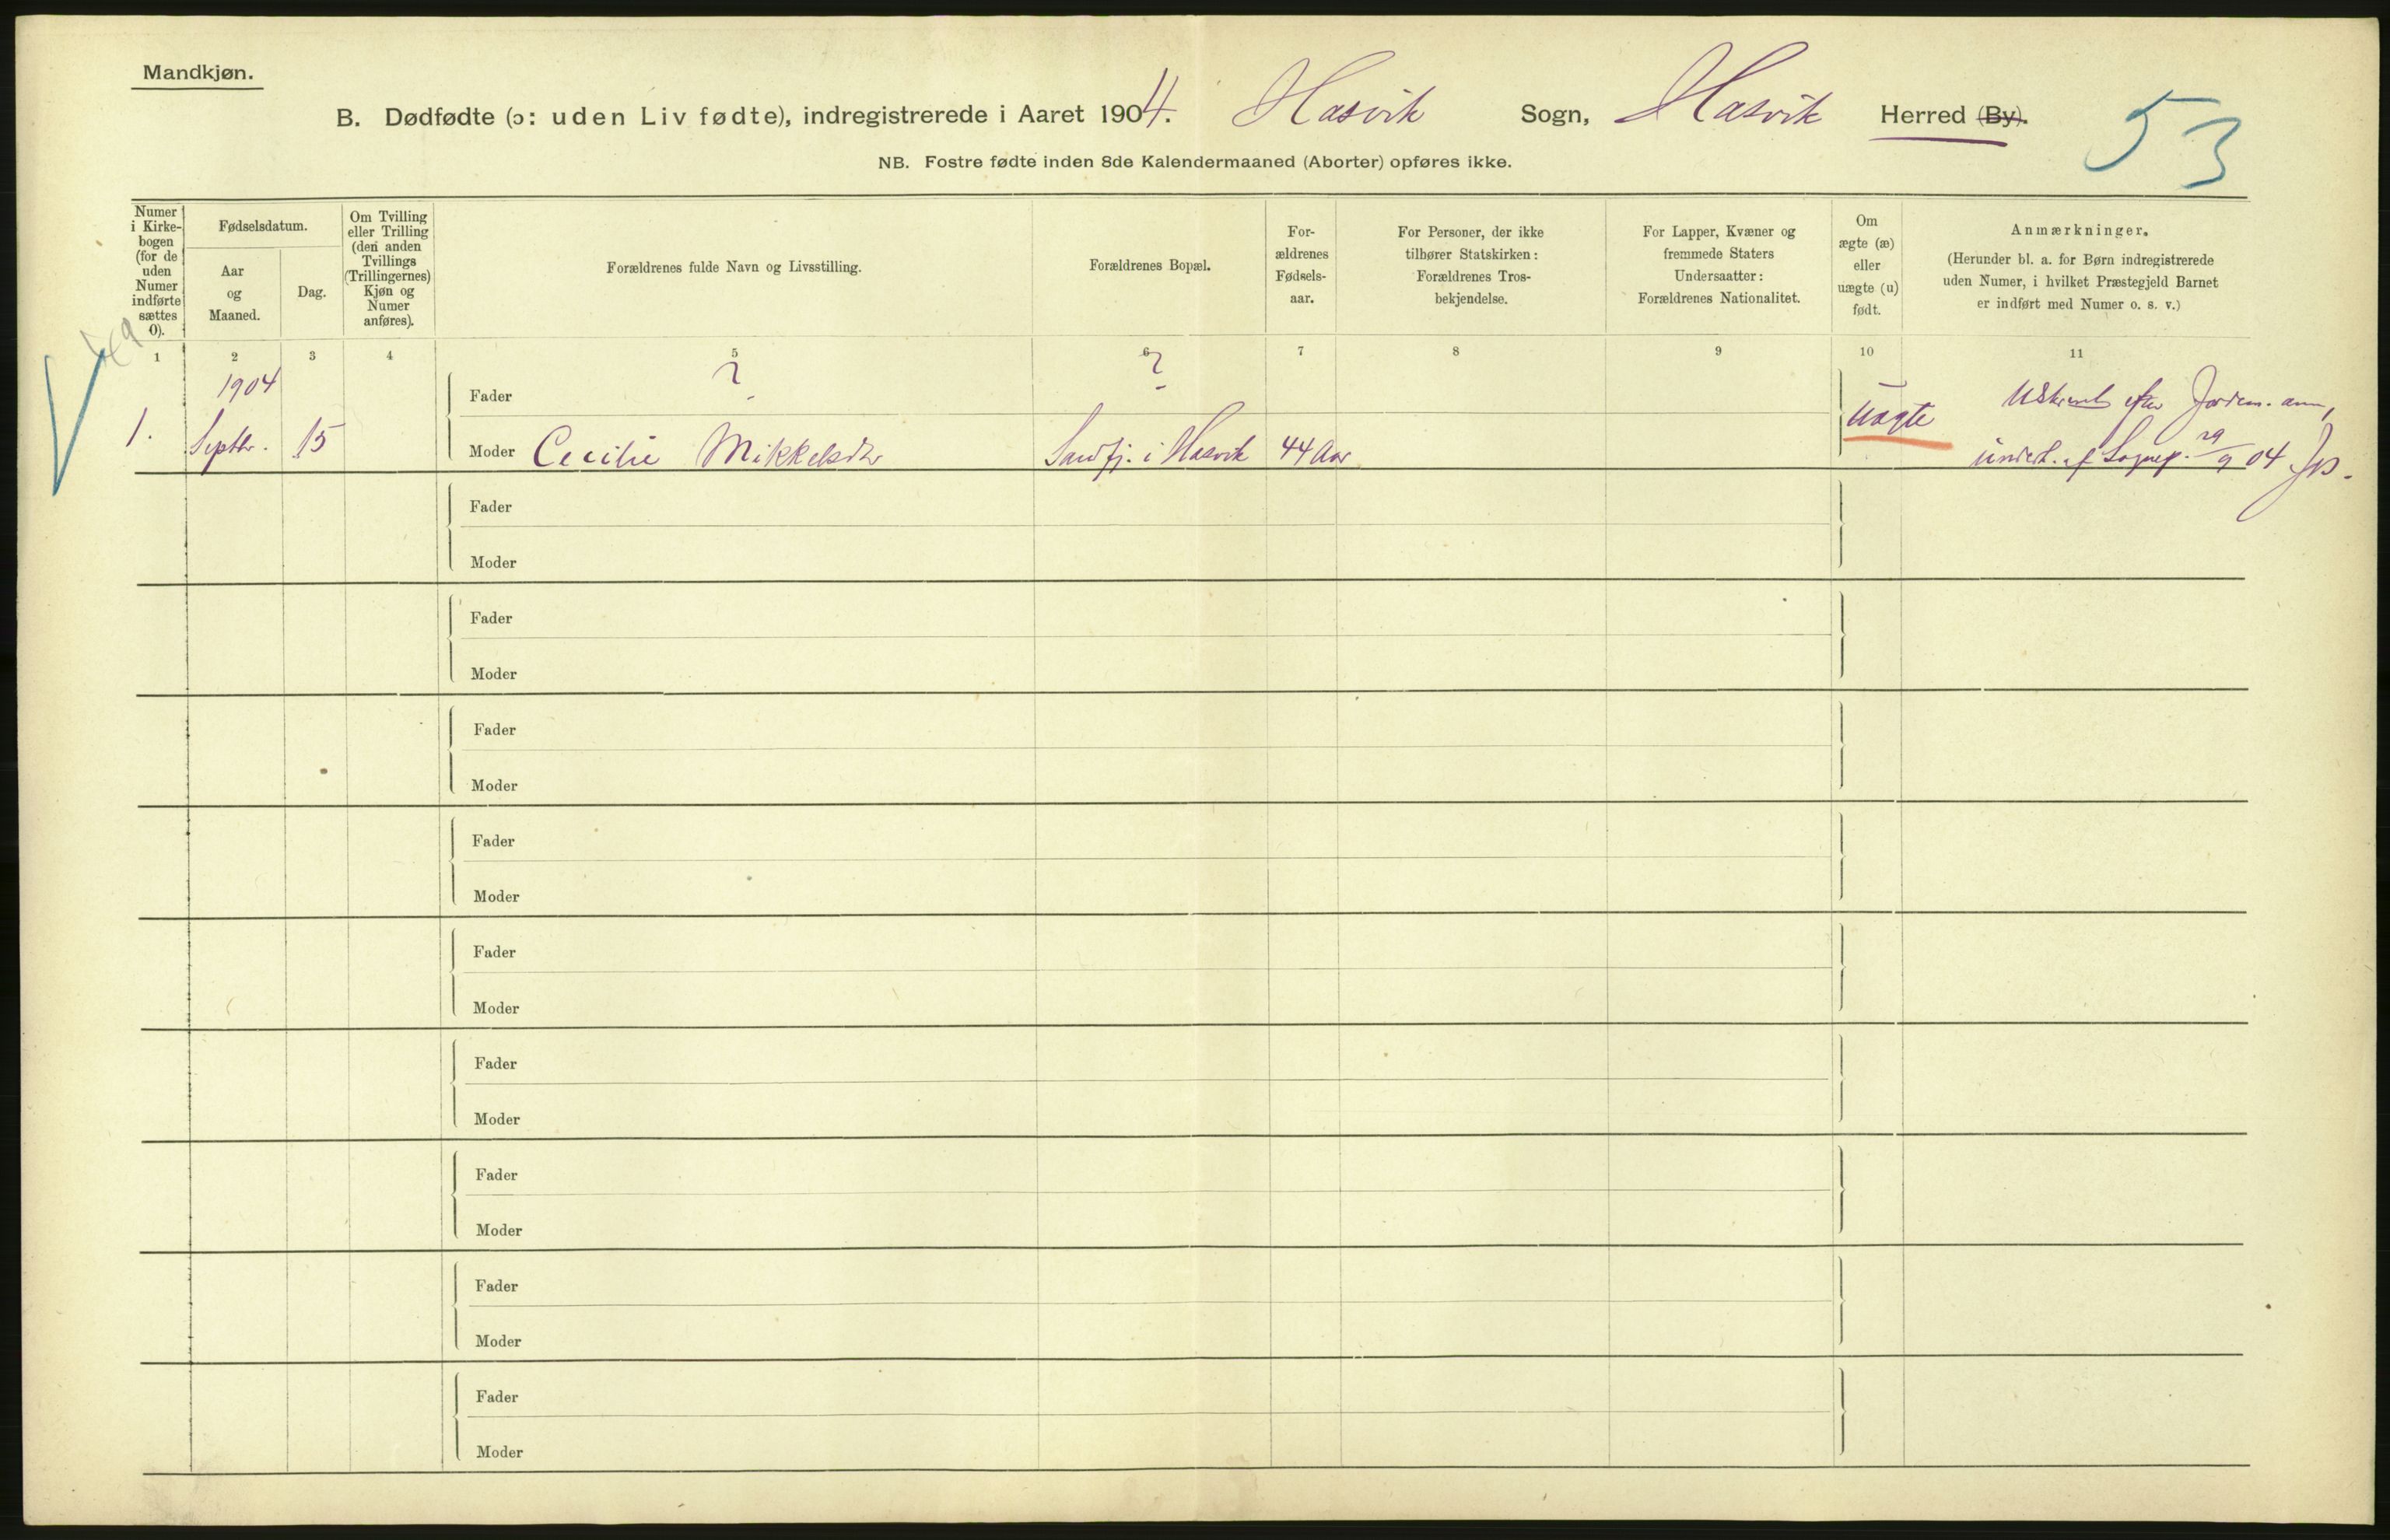 Mandkjøn.
B. Dødfødte (ɔ: uden Liv fødte), indregistrerede i Aaret 1904. Hasvik Sogn, Hasvik Herred (By).
53
NB. Fostre fødte inden 8de Kalendermaaned (Aborter) opføres ikke.
Numer
i Kirke-
bogen
(for de
uden
Numer
indførte
sættes
0).
Fødselsdatum.
Aar
og
Maaned.
Dag.
Om Tvilling
eller Trilling
(den anden
Tvillings
(Trillingernes)
Kjøn og
Numer
anføres).
Forældrenes fulde Navn og Livsstilling.
Forældrenes Bopæl.
For-
ældrenes
Fødsels-
aar.
For Personer, der ikke
tilhører Statskirken:
Forældrenes Tros-
bekjendelse.
For Lapper, Kvæner og
fremmede Staters
Undersaatter:
Forældrenes Nationalitet.
Om
ægte (æ)
eller
uægte (u)
født.
Anmærkninger.
(Herunder bl. a. for Børn indregistrerede
uden Numer, i hvilket Præstegjeld Barnet
er indført med Numer o. s. v.)
1 2 3 4 5 6 7 8 9 10 11
1904 Fader ? ? efter Jordem. anm,
1. Septbr. 15 Moder Cecilie Mikkelsdtr Sandfj. i Hasvik 44 Aar uægte 29/9 04
Fader
Moder
Fader
Moder
Fader
Moder
Fader
Moder
Fader
Moder
Fader
Moder
Fader
Moder
Fader
Moder
Fader
Moder